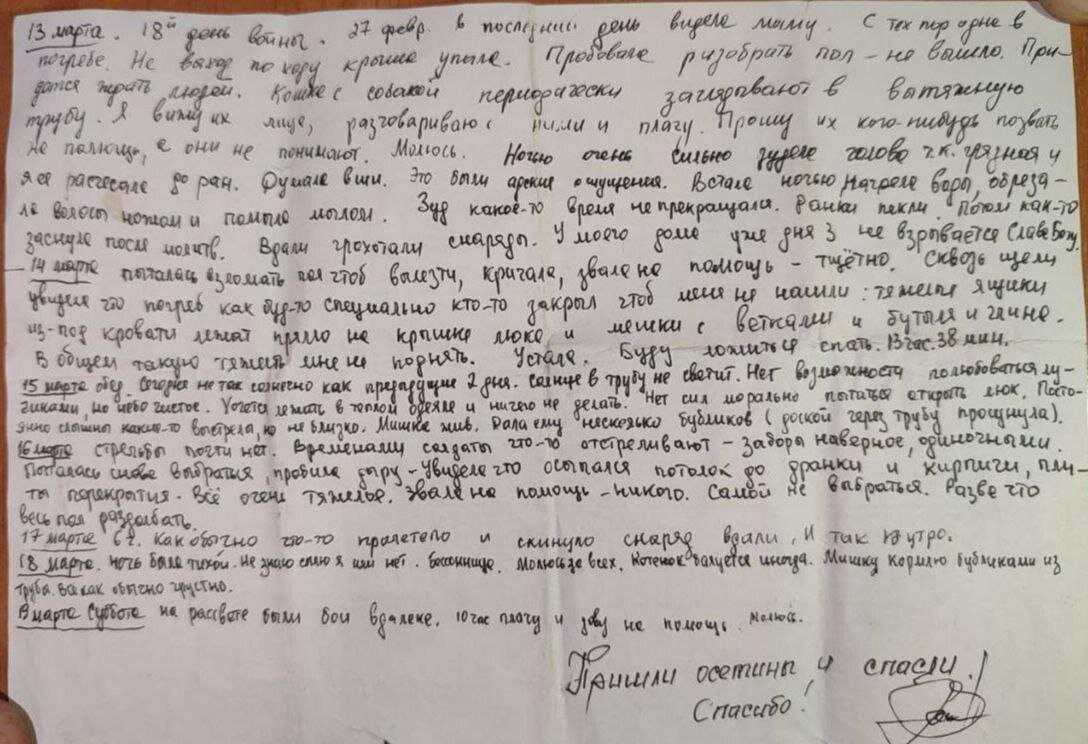 13 марта. 18й день войны. 27 февр. в последний день видела маму. С тех пор одна в
погребе. На выход по ходу крыша упала. Пробовала разобрать пол - не вышло. При-
дется ждать людей. Кошка с собакой периодически заглядывают в вытяжную
трубу. Я вижу их лица, разговариваю с ними и плачу. Прошу их кого-нибудь позвать
на помощь, а они не понимают. Молюсь. Ночью очень сильно зудела голова т.к. грязная и
я её расчесала до ран. Думала вши. Это были адские ощущения. Встала ночью, нагрела воды, обреза-
ла волосы ножом и помыла мылом. Зуд какое-то время не прекращался. Ранки пекли. Потом как-то
заснула после молитв. Вдали грохотали снаряды. У моего дома уже дня 3 не взрывается Слава Богу.
14 марта пыталась взломать пол чтоб вылезти, кричала, звала на помощь - тщётно. Сквозь щели
увидела что погреб как буд-то специально кто-то закрыл чтоб меня не нашли: тяжелые ящики
из-под кровати лежат прямо на крышке люка и мешки с ветками и бутыля и глина.
В общем такую тяжесть мне не поднять. Устала. Буду ложиться спать. 13 час. 38 мин.
15 марта обед. Сегодня не так солнечно как предыдущие 2 дня. Солнце в трубу не светит. Нет возможности полюбоваться лу-
чиками, но небо чистое. Хочется лежать в теплой одеяле и ничего не делать. Нет сил морально пытаться открыть люк. Посто-
янно слышны какие-то выстрелы, но не близко. Мишка жив. Дала ему несколько бубликов (доской через трубу просунула).
16 марта стрельбы почти нет. Временами солдаты что-то отстреливают - заборы наверное, одиночными.
Пыталась снова выбраться, пробила дыру - увидела что осыпался потолок до дранки и кирпичи, пли-
ты перекрытия. Всё очень тяжелое. Звала на помощь - никого. Самой не выбраться. Разве что
весь пол раздолбать.
17 марта 6 ч. Как обычно что-то пролетело и скинуло снаряд вдали, И так утро.
18 марта. ночь была тихой. не знаю сплю я или нет. бессонница. Молюсь за всех. Котенок балуется иногда. Мишку кормлю бубликами из
трубы. Всё как обычно грустно.
19 марта Суббота на рассвете были бои вдалеке. 10 час плачу и зову на помощь. молюсь.
Пришли осетины и спасли!
Спасибо!